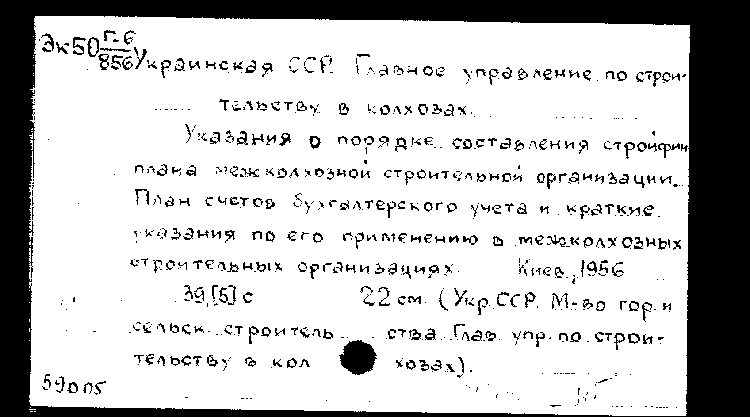 Эк50 Г-6
856
Украинская ССР. Главное управление по строи-
тельству в колхозах.
Указания о порядке составления стройфин-
плана межколхозной строительной организации.
План счетов бухгалтерского учета и краткие
указания по его применению в межколхозных
строительных организациях. Киев, 1956
39,[5] с 22 см. (Укр.ССР. М-во гор. и
сельск. строительства Глав. упр. по строи-
тельству в колхозах).
59005